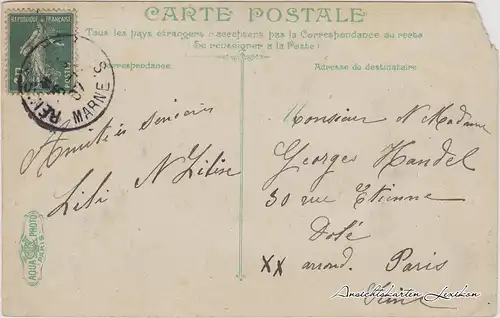 CARTE POSTALE
Tous les pays étrangers n'acceptent pas la Correspondance au recto
(Se renseigner à la Poste)
Correspondance
Adresse du destinataire
REPUBLIQUE FRANÇAISE
POSTES
MARNE
Amitiés sincères
Lili
Monsieur Madame
Georges Handel
30 rue Etienne
Dolé
XX arrond. Paris
Seine
AQUA PHOTO
PARIS
Ansichtskarten Lexikon